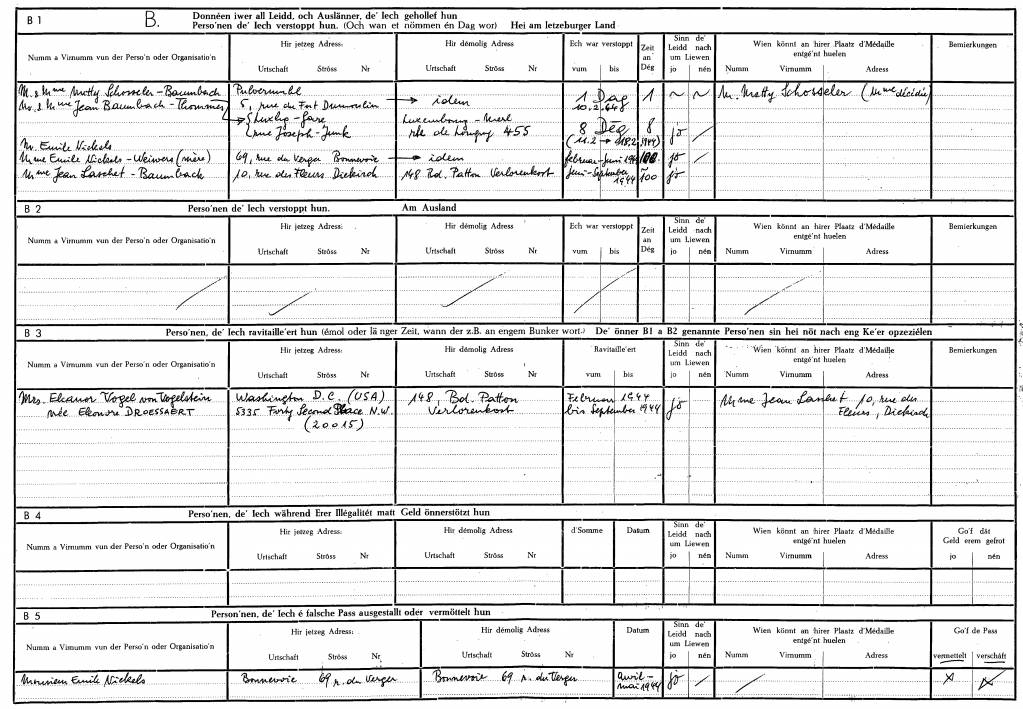 B 1 B. Donnéen iwer all Leidd, och Auslänner, de' Iech gehollef hun
Perso'nen de' Iech verstoppt hun. (Och wan et nömmen én Dag wor) Hei am letzeburger Land
Numm a Virnumm vun der Perso'n oder Organisatio'n
Hir jetzeg Adress:
Urtschaft Ströss Nr
Hir démolig Adress
Urtschaft Ströss Nr
Ech war verstoppt
vum bis
Zeit an Dég
Sinn de' Leidd nach um Liewen
jo nén
Wien könnt an hirer Plaatz d'Médaille entgé'nt huelen
Numm Virnumm Adress
Bemierkungen
M. & Mme Metty Schosseler-Baumbach Pulvermuhl 1 Dag 1 ~ ~ M. Metty Schosseler (Mme décédée)
Mr. & Mme Jean Baumbach-Thommes 5, rue du Fort Dumoulin idem 10.2.44
Luxbg-Gare Luxembourg-Merl 8 Dég 8 jo
rue Joseph-Junk rte de Longwy 455 (11.2 → 18.2.1944)
Mr. Emile Nickels
Mme Emile Nickels-Weiwers (mère) 69, rue du Verger Bonnevoie idem februar-juni 1944 100 jo
Mme Jean Laschet-Baumback 10, rue des Fleurs Diekirch 148 Bd. Patton Verlorenkost Juni-September 1944 ~100 jo
B 2 Perso'nen de' Iech verstoppt hun. Am Ausland
Numm a Virnumm vun der Perso'n oder Organisatio'n
Hir jetzeg Adress:
Urtschaft Ströss Nr
Hir démolig Adress
Urtschaft Ströss Nr
Ech war verstoppt
vum bis
Zeit an Dég
Sinn de' Leidd nach um Liewen
jo nén
Wien könnt an hirer Plaatz d'Médaille entgé'nt huelen
Numm Virnumm Adress
Bemierkungen
B 3 Perso'nen, de' Iech ravitaille'ert hun (émol oder lä nger Zeit, wann der z.B. an engem Bunker wort.) De' önner B1 a B2 genannte Perso'nen sin hei nöt nach eng Ke'er opzeziélen
Numm a Virnumm vun der Perso'n oder Organisatio'n
Hir jetzeg Adress:
Urtschaft Ströss Nr
Hir démolig Adress
Urtschaft Ströss Nr
Ravitaille'ert
vum bis
Sinn de' Leidd nach um Liewen
jo nén
Wien könnt an hirer Plaatz d'Médaille entgé'nt huelen
Numm Virnumm Adress
Bemierkungen
Mrs. Eleanor Vogel von Vogelstein Washington D.C. (USA) 148, Bd. Patton Februar 1944 jo Mme Jean Laschet 10, rue des
née Eleonore DROESSAERT 5335 Forty Second Place N.W. Verlorenkost bis September 1944 Fleurs, Diekirch
(20015)
B 4 Perso'nen, de' Iech während Erer Illégalitét matt Geld önnerstötzt hun
Numm a Virnumm vun der Perso'n oder Organisatio'n
Hir jetzeg Adress:
Urtschaft Ströss Nr
Hir démolig Adress
Urtschaft Ströss Nr
d'Somme
Datum
Sinn de' Leidd nach um Liewen
jo nén
Wien könnt an hirer Plaatz d'Médaille entgé'nt huelen
Numm Virnumm Adress
Go'f dät Geld erem gefrot
jo nén
B 5 Person'nen, de' Iech é falsche Pass ausgestallt oder vermöttelt hun
Numm a Virnumm vun der Perso'n oder Organisatio'n
Hir jetzeg Adress:
Urtschaft Ströss Nr
Hir démolig Adress
Urtschaft Ströss Nr
Datum
Sinn de' Leidd nach um Liewen
jo nén
Wien könnt an hirer Plaatz d'Médaille entgé'nt huelen
Numm Virnumm Adress
Go'f de Pass
vermettelt verschäft
Monsieur Emile Nickels Bonnevoie 69 r. du Verger Bonnevoie 69 r. du Verger avril-mai 1944 jo X X